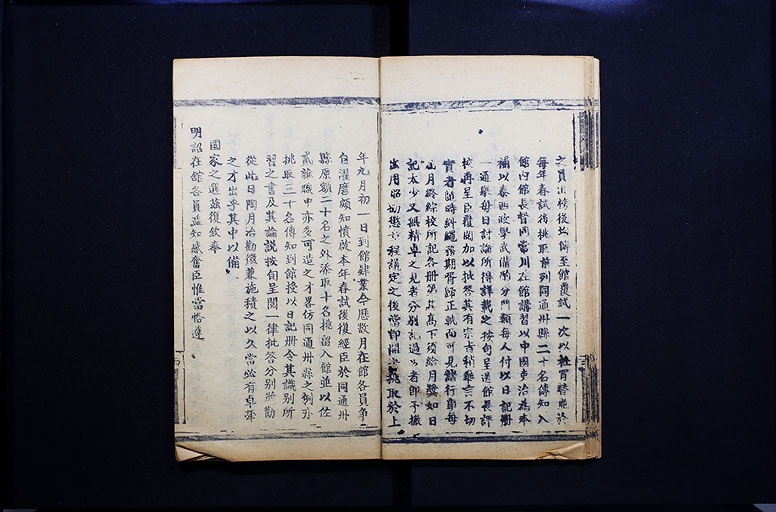 之員出榜後均傳至館覆試一次以杜冒替並於
每年春試後挑取前列同通州縣二十名傳知入
館內館長督同當川在館講習以中國吏治為本
補以泰西政學武備門分門類每人付以日記冊
一通舉每日討論所得詳載之按旬呈送館長評
按再呈臣覆閱加以批答其有宗旨稍乖言不切
實者隨時糾繩務期胥歸正軌而可見諸行事每
屆月終綜校所記各冊第其高下發給月獎如日
記太少又無精卓之見者分別記過少者即予撤
出用昭勸懲章程議定之後當即開館挑取於上
年九月初一日到館肄業今歷數月在館各員爭
自濯磨頗知憤啟本年春試後復經臣於同通州
縣原額二十名之外添取十名挑留入館並以佐
貳雜職中亦多可造之才畧仿同通州縣之例亦
挑取三十名傳知到館授以日記冊令其識別所
習之書及其論說按旬呈閱一律批答分別獎勸
從此日陶月冶勸懲兼施積之以久當必有卓犖
之才出乎其中以備
國家之選茲復欽奉
明詔在館各員益知感奮臣惟當恪遵